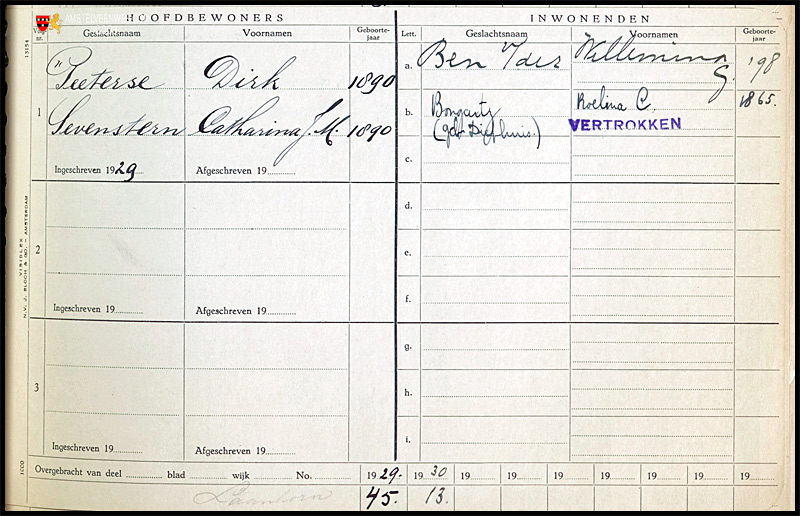 HOOFDBEWONERS
INWONENDEN
Geslachtsnaam Voornamen Geboorte-jaar
Lett. Geslachtsnaam Voornamen Geboorte-jaar
1
Peeterse Dirk 1890
Sevenstern Catharina J. M. 1890
Ingeschreven 1929 Afgeschreven 19
a. Ben Willemina G. '98
b. Roelina C. 1865.
VERTROKKEN
c.
2
Ingeschreven 19 Afgeschreven 19
d.
e.
f.
3
Ingeschreven 19 Afgeschreven 19
g.
h.
i.
Overgebracht van deel blad wijk No. 1929. 1930 19 19 19 19 19 19 19
45. 13.
N.V. J. BLOCH & CO. – AMSTERDAM
VISIBLEX